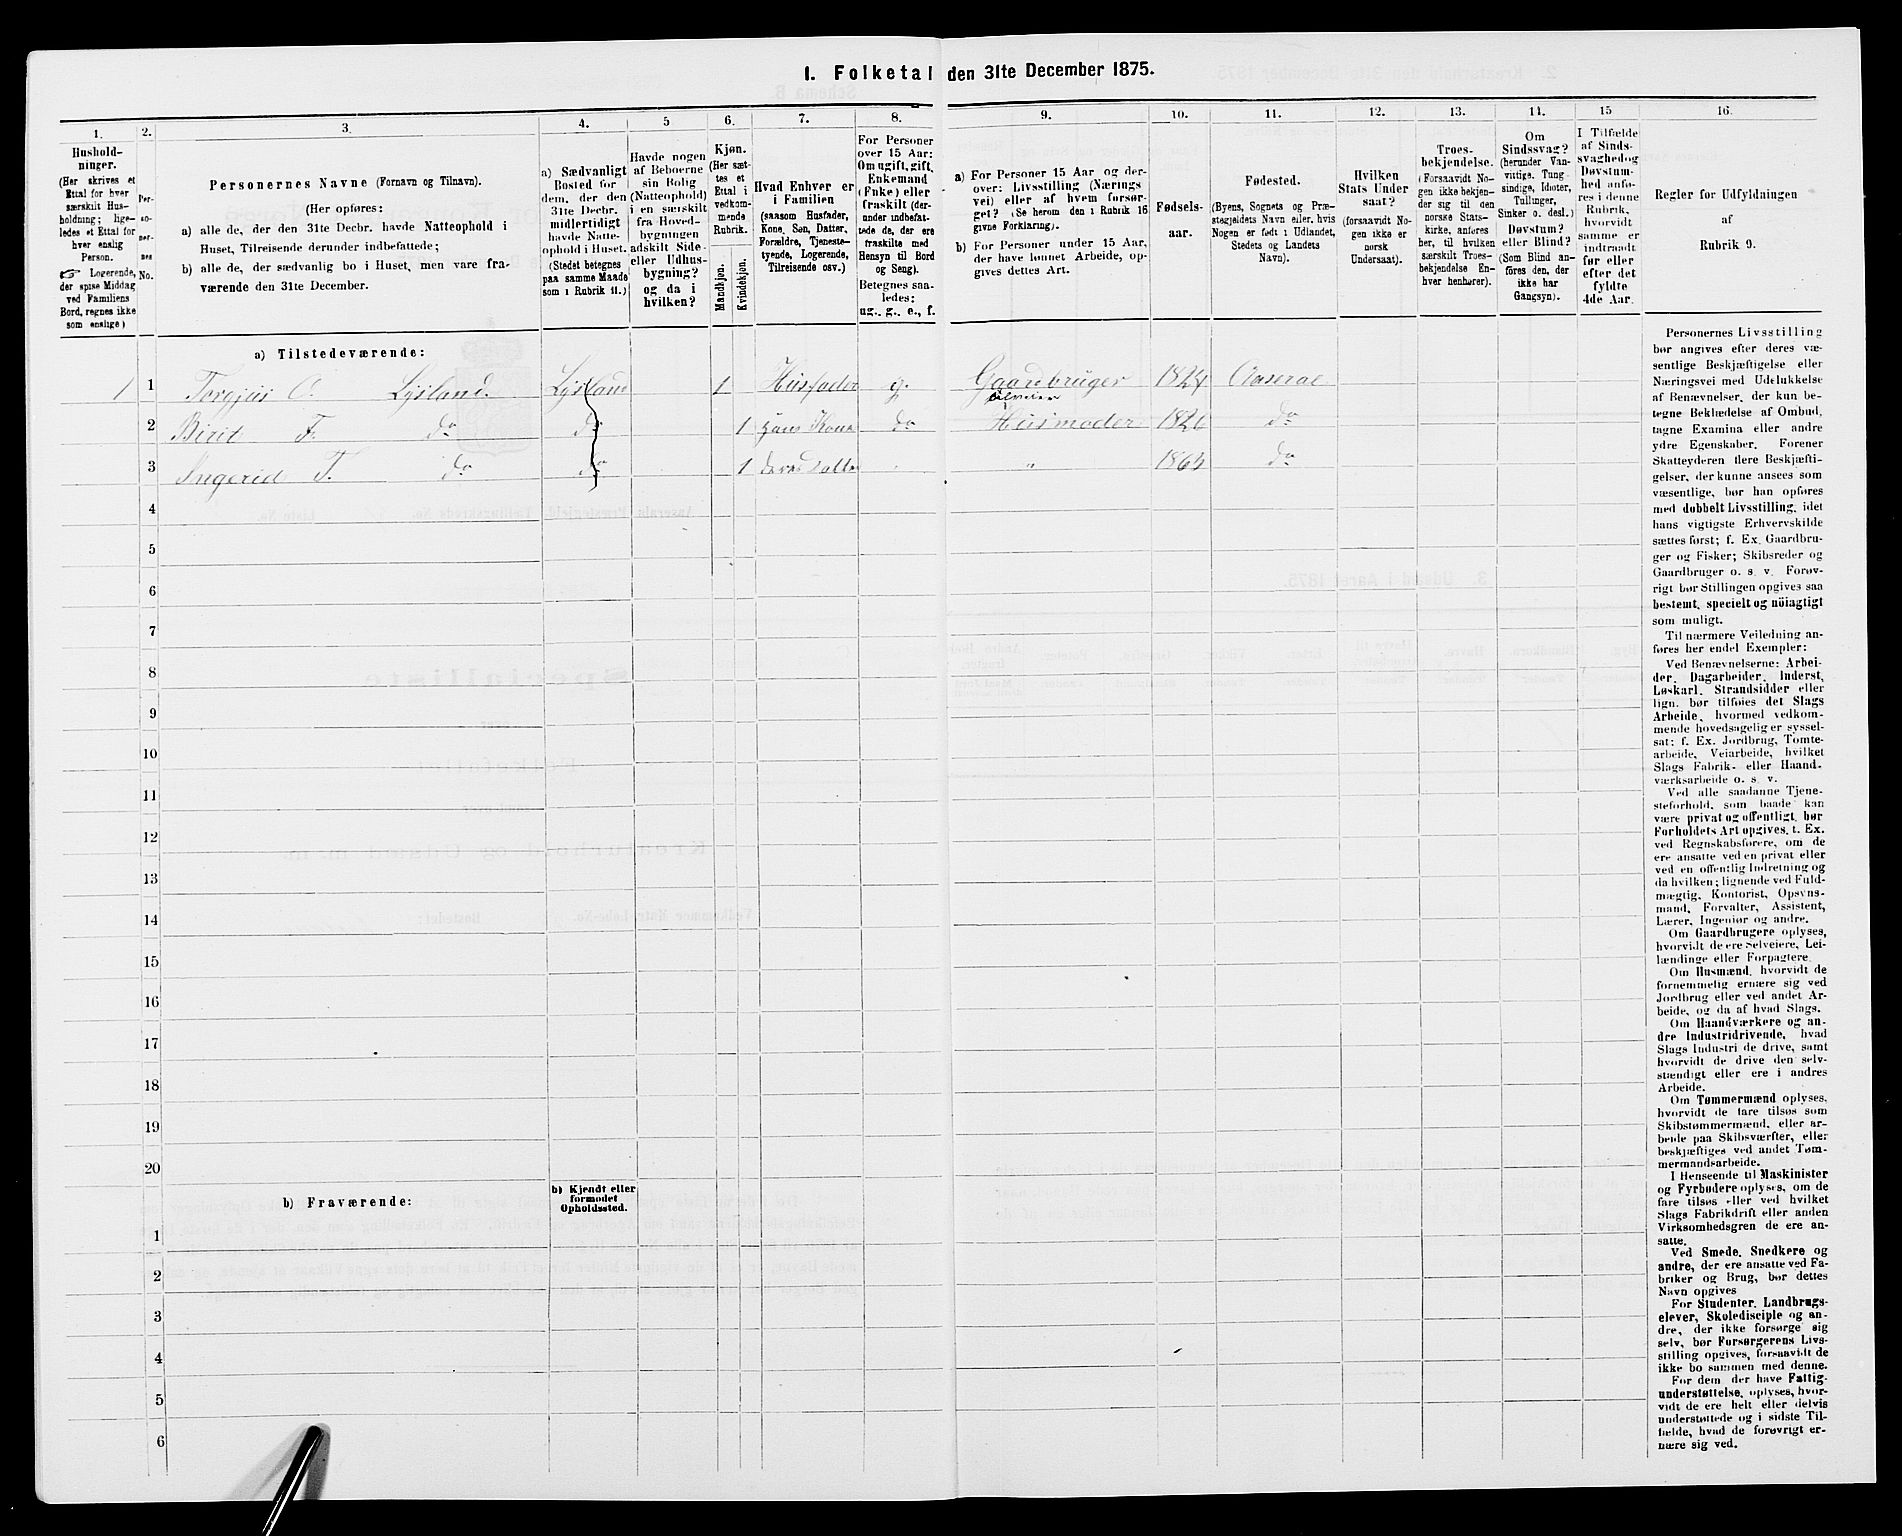 I. Folketal den 31te December 1875.
1.
Hushold-
ninger.
(Her skrives et
Ettal for hver
særskilt Hus-
holdning; lige-
ledes et Ettal for
hver enslig
Person.
☞ Logerende,
der spise Middag
ved Familiens
Bord, regnes ikke
som enslige)
2.
Per-
so-
ner-
nes
No.
3.
Personernes Navne (Fornavn og Tilnavn).
(Her opføres:
a) alle de, der den 31te Decbr. havde Natteophold i
Huset, Tilreisende derunder indbefattede;
b) alle de, der sædvanlig bo i Huset, men vare fra-
værende den 31te December.
4.
a) Sædvanligt
Bosted for
dem, der den
31te Decbr.
midlertidigt
havde Natte-
ophold i Huset.
(Stedet betegnes
paa samme Maade
som i Rubrik 11.)
5
Havde nogen
af Beboerne
sin Bolig
(Natteophold)
i en særskilt
fra Hoved-
bygningen
adskilt Side-
eller Udhus-
bygning?
og da i
hvilken?
6.
Kjøn.
(Her sæt-
tes et
Ettal i
vedkom-
mende
Rubrik.
Mandkjøn.
Kvindekjøn.
7.
Hvad Enhver er
i Familien
(saasom Husfader,
Kone, Søn, Datter,
Forældre, Tjeneste-
tyende, Logerende,
Tilreisende osv.)
8.
For Personer
over 15 Aar:
Om ugift, gift,
Enkemand
(Enke) eller
fraskilt (der-
under indbefat-
tede de, der ere
fraskilte med
Hensyn til Bord
og Seng).
Betegnes saa-
ledes:
ug., g., e., f.
9.
a) For Personer 15 Aar og der-
over: Livsstilling (Nærings
vei) eller af hvem forsør-
get? (Se herom den i Rubrik 16
givne Forklaring).
b) For Personer under 15 Aar,
der have lønnet Arbeide, op-
gives dettes Art.
10.
Fødsels-
aar.
11.
Fødested.
(Byens, Sognets og Præ-
stegjeldets Navn eller, hvis
Nogen er født i Udlandet,
Stedets og Landets
Navn).
12.
Hvilken
Stats Under
saat?
(forsaavidt No-
gen ikke er
norsk
Undersaat).
13.
Troes-
bekjendelse.
(Forsaavidt No-
gen ikke bekjen-
der sig til den
norske Stats-
kirke, anføres
her, til hvilken
særskilt Troes-
bekjendelse En-
hver henhører).
14.
Om
Sindssvag?
(herunder Van-
vittige, Tung-
sindige, Idioter,
Tullinger,
Sinker o. desl.)
Døvstum?
eller Blind?
(Som Blind an-
føres den, der
ikke har
Gangsyn).
15
I Tilfælde
af Sinds-
svaghed og
Døvstum-
hed anfø-
res i denne
Rubrik,
hvorvidt
samme er
indtraadt
før eller
efter det
fyldte
4de Aar.
16.
Regler for Udfyldningen
af
Rubrik 9.
a) Tilstedeværende:
1 1 Torgjus O. Lysland. Lysland 1 Husfader g. Gaardbruger 1824 Aaserae
Selveier
2 Birit F. do do 1 hans Kone do Husmoder 1826 do
3 Ingerid T. do do 1 deres Datter . " 1865 do
4
5
6
7
8
9
10
11
12
13
14
15
16
17
18
19
20
b) Fraværende:
b) Kjendt eller
formodet
Opholdssted.
1
2
3
4
5
6
Personernes Livsstilling
bør angives efter deres væ-
sentlige Beskjæftigelse eller
Næringsvei med Udelukkelse
af Benævnelser, der kun be-
tegne Beklædelse af Ombud,
tagne Examina eller andre
ydre Egenskaber. Forener
Skatteyderen flere Beskjæfti-
gelser, der kunne ansees som
væsentlige, bør han opføres
med dobbelt Livsstilling, idet
hans vigtigste Erhvervskilde
sættes først; f. Ex. Gaardbru-
ger og Fisker; Skibsreder og
Gaardbruger o. s. v. Forøv-
rigt bør Stillingen opgives saa
bestemt, specielt og nøiagtigt
som muligt.
Til nærmere Veiledning an-
føres her endel Exempler:
Ved Benævnelserne: Arbei-
der, Dagarbeider, Inderst,
Løskarl, Strandsidder eller
lign. bør tilføies det Slags
Arbeide, hvormed vedkom-
mende hovedsagelig er syssel-
sat; f. Ex. Jordbrug, Tomte-
arbeide, Veiarbeide, hvilket
Slags Fabrik- eller Haand-
værksarbeide o. s. v.
Ved alle saadanne Tjene-
steforhold, som baade kan
være privat og offentligt, bør
Forholdets Art opgives, t. Ex.
ved Regnskabsførere, om de
ere ansatte ved en privat eller
ved en offentlig Indretning og
da hvilken; lignende ved Fuld-
mægtig, Kontorist, Opsyns-
mand, Forvalter, Assistent,
Lærer, Ingeniør og andre.
Om Gaardbrugere oplyses,
hvorvidt de ere Selveiere, Lei-
lændinge eller Forpagtere.
Om Husmænd, hvorvidt de
fornemmelig ernære sig ved
Jordbrug eller ved andet Ar-
beide, og da af hvad Slags.
Om Haandværkere og an-
dre Industridrivende, hvad
Slags Industri de drive, samt
hvorvidt de drive den selv-
stændigt eller ere i andres
Arbeide.
Om Tømmermænd oplyses,
hvorvidt de fare tilsøs som
Skibstømmermænd, eller ar-
beide paa Skibsværfter, eller
beskjæftiges ved andet Tøm-
mermandsarbeide.
I Henseende til Maskinister
og Fyrbødere oplyses, om de
fare tilsøs eller ved hvilket
Slags Fabrikdrift eller anden
Virksomhedsgren de ere an-
satte.
Ved Smede, Snedkere og
andre, der ere ansatte ved Fa-
briker og Brug, bør dettes
Navn opgives
For Studenter, Landbrugs-
elever, Skoledisciple og an-
dre, der ikke forsørge sig
selv, bør Forsørgerens Livs-
stilling opgives, forsaavidt de
ikke bo sammen med denne.
For dem der have Fattig-
understøttelse, oplyses, hvor-
vidt de ere helt eller delvis
understøttede og i sidste Til-
fælde, hvad de forøvrigt er-
nære sig ved.